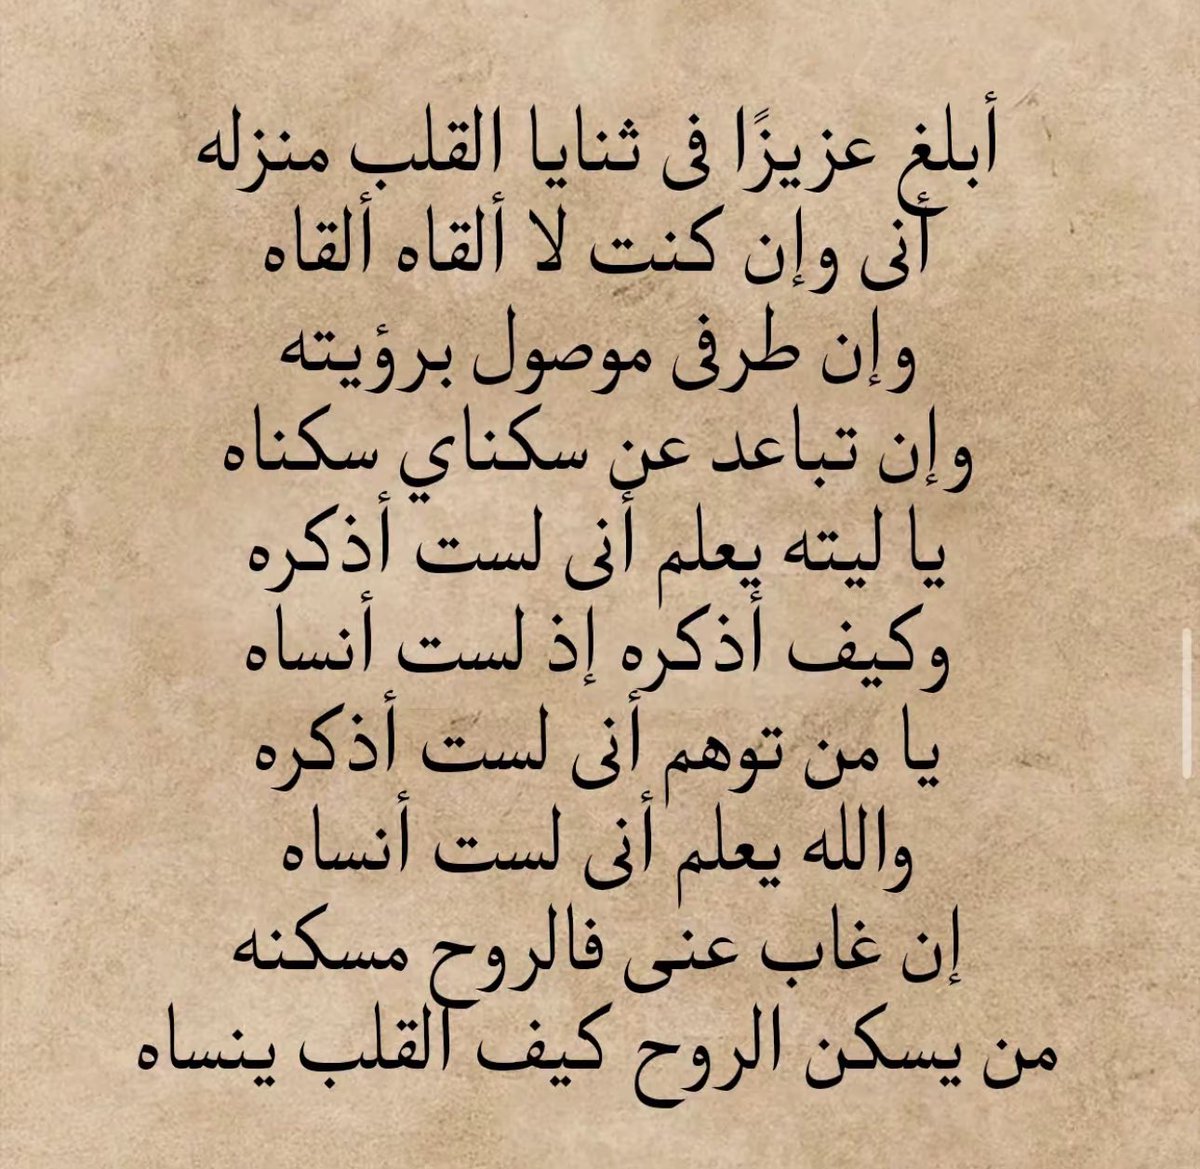 أبلغ عزيزًا فى ثنايا القلب منزله
أنى وإن كنت لا ألقاه ألقاه
وإن طرفى موصول برؤيته
وإن تباعد عن سكناي سكناه
يا ليته يعلم أنى لست أذكره
وكيف أذكره إذ لست أنساه
يا من توهم أنى لست أذكره
والله يعلم أنى لست أنساه
إن غاب عنى فالروح مسكنه
من يسكن الروح كيف القلب ينساه